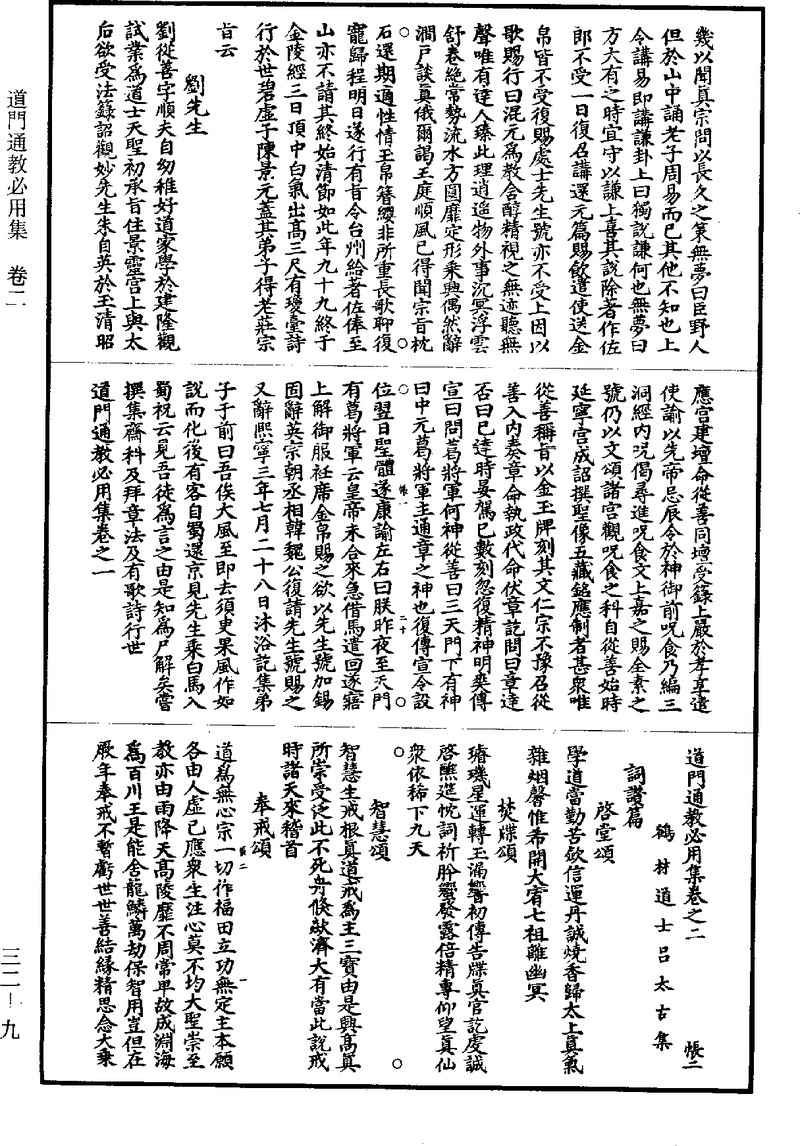 道門通教必用集 卷二
三二—九
幾以聞真宗問以長久之策無夢曰臣野人
但於山中誦老子周易而已其他不知也上
令講易即講謙卦上曰獨說謙何也無夢曰
方大有之時宜守以謙上喜其說除著作佐
郎不受一日復召講還元篇賜飲遣使送金
帛皆不受復賜處士先生號亦不受上因以
歌賜行曰混元為教含醇精視之無迹聽無
聲唯有達人臻此理逍遥物外事沉冥浮雲
舒卷絕常勢流水方圓靡定形乘興偶然辭
澗戶談真俄爾謁王庭順風已得聞宗旨枕
石還期適性情玉帛簪纓非所重長歌聊復
寵歸程明日遂行有旨令台州給著佐俸至
山亦不請其終始清節如此年九十九終于
金陵經三日頂中白氣出高三尺有瓊臺詩
行於世碧虛子陳景元蓋其弟子得老莊宗
旨云
劉先生
劉從善字順天自幼稚好道家學於建隆觀
試業為道士天聖初承旨住景靈宮上與太
后欲受法籙詔觀妙先生朱自英於玉清昭
應宮建壇命從善同壇受籙上嚴於孝享遣
使諭以先帝忌辰令於神御前呪食乃編三
洞經內呪偈尋進呪食文上嘉之賜全素之
號仍以文頒諸宮觀呪食之科自從善始時
延寧宮成詔撰聖像五藏銘應制者甚衆唯
從善稱旨以金玉牌刻其文仁宗不豫召從
善入內奏章命執政代命伏章訖問曰章達
否曰已達時晏駕已數刻忽復精神明爽傳
宣曰問葛將軍何神從善曰三天門下有神
曰中元葛將軍主通章之神也復傳宣令設
位翌日聖體遂康諭左右曰朕昨夜至天門
有葛將軍云皇帝未合來急借馬遣回遂寤
上解御服衽席金帛賜之欲以先生號加錫
固辭英宗朝丞相韓魏公復請先生號賜之
又辭熙寧三年七月二十八日沐浴訖集弟
子于前曰吾俟大風至即去須臾果風作如
說而化後有客自蜀還京見先生乘白馬入
蜀祝云見吾徒為言之由是知為尸解矣嘗
撰集齋科及拜章法及有歌詩行世
道門通教必用集卷之一
道門通教必用集卷之二 帳二
鶴林道士呂太古集
詞讚篇
啓堂頌
學道當勤苦欽信運丹誠燒香歸太上真氣
雜烟馨惟希開大宥七祖離幽冥
焚牒頌
璿璣星運轉玉漏響初傳告牒真官訖虔誠
啓醮筵忱詞祈肸蠁發露倍精專仰望真仙
衆依稀下九天
智慧頌
智慧生戒根真道戒為主三寶由是興高真
所崇受泛此不死舟倏歘濟大有當此說戒
時諸天來稽首
奉戒頌
道為無心宗一切作福田立功無定主本願
各由人虛己應衆生注心莫不均大聖崇至
教亦由雨降天高陵靡不周常卑故成淵海
為百川王是能舍龍鱗萬劫保智用豈但在
厥年奉戒不暫虧世世善結緣精思念大乘